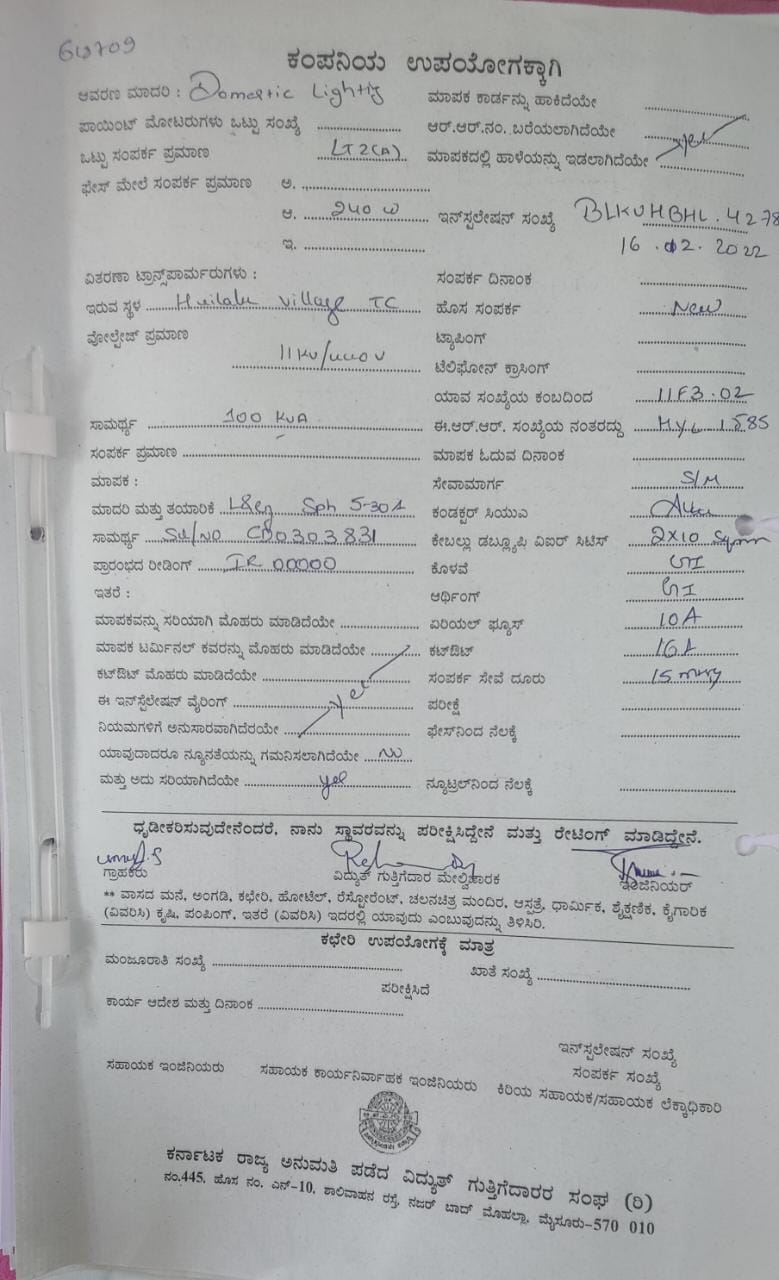 60709
ಕಂಪನಿಯ ಉಪಯೋಗಕ್ಕಾಗಿ
ಆವರಣ ಮಾದರಿ : Domestic Lighting ಮಾಪಕ ಕಾರ್ಡನ್ನು ಹಾಕಿದೆಯೇ
ಪಾಯಿಂಟ್ ಮೋಟರುಗಳು ಒಟ್ಟು ಸಂಖ್ಯೆ ಆರ್.ಆರ್.ನಂ. ಬರೆಯಲಾಗಿದೆಯೇ
ಒಟ್ಟು ಸಂಪರ್ಕ ಪ್ರಮಾಣ LT2(A) ಮಾಪಕದಲ್ಲಿ ಹಾಳೆಯನ್ನು ಇಡಲಾಗಿದೆಯೇ yes
ಫೇಸ್ ಮೇಲೆ ಸಂಪರ್ಕ ಪ್ರಮಾಣ ಅ.
ಆ. 240 W ಇನ್‌ಸ್ಟಲೇಷನ್ ಸಂಖ್ಯೆ BLKVHBHL.4278
ಇ. 16.02.2022
ವಿತರಣಾ ಟ್ರಾನ್ಸ್‌ಪಾರ್ಮರುಗಳು : ಸಂಪರ್ಕ ದಿನಾಂಕ
ಇರುವ ಸ್ಥಳ village TC ಹೊಸ ಸಂಪರ್ಕ New
ವೋಲ್ಟೇಜ್ ಪ್ರಮಾಣ 11KV/440V ಟ್ಯಾಪಿಂಗ್
ಟೆಲಿಫೋನ್ ಕ್ರಾಸಿಂಗ್
ಯಾವ ಸಂಖ್ಯೆಯ ಕಂಬದಿಂದ 11F3.02
ಸಾಮರ್ಥ್ಯ 100 KVA ಈ.ಆರ್.ಆರ್. ಸಂಖ್ಯೆಯ ನಂತರದ್ದು
ಸಂಪರ್ಕ ಪ್ರಮಾಣ ಮಾಪಕ ಓದುವ ದಿನಾಂಕ
ಮಾಪಕ : ಸೇವಾಮಾರ್ಗ S/M
ಮಾದರಿ ಮತ್ತು ತಯಾರಿಕೆ L&G Sph 5-30A ಕಂಡಕ್ಟರ್ ಸಿಯುವಿ
ಸಾಮರ್ಥ್ಯ Sl/NO CD0303831 ಕೇಬಲ್ಲು ಡಬ್ಲ್ಯೂಪಿ ವಿಐರ್ ಸಿಟಿಸ್ 2x10 Sqmm
ಪ್ರಾರಂಭದ ರೀಡಿಂಗ್ IR 00000 ಕೊಳವೆ GI
ಇತರೆ : ಆರ್ಥಿಂಗ್ GI
ಮಾಪಕವನ್ನು ಸರಿಯಾಗಿ ಮೊಹರು ಮಾಡಿದೆಯೇ ಏರಿಯಲ್ ಫ್ಯೂಸ್ 10A
ಮಾಪಕ ಟರ್ಮಿನಲ್ ಕವರನ್ನು ಮೊಹರು ಮಾಡಿದೆಯೇ ಕಟ್‌ಔಟ್ 16A
ಕಟ್‌ಔಟ್ ಮೊಹರು ಮಾಡಿದೆಯೇ ಸಂಪರ್ಕ ಸೇವೆ ದೂರು
ಈ ಇನ್‌ಸ್ಟೆಲೇಷನ್ ವೈರಿಂಗ್ yes ಪರೀಕ್ಷೆ
ನಿಯಮಗಳಿಗೆ ಅನುಸಾರವಾಗಿದೆರಯೇ ಫೇಸ್‌ನಿಂದ ನೆಲಕ್ಕೆ
ಯಾವುದಾದರೂ ನ್ಯೂನತೆಯನ್ನು ಗಮನಿಸಲಾಗಿದೆಯೇ no
ಮತ್ತು ಅದು ಸರಿಯಾಗಿದೆಯೇ yes ನ್ಯೂಟ್ರಲ್‌ನಿಂದ ನೆಲಕ್ಕೆ
ಧೃಡೀಕರಿಸುವುದೇನೆಂದರೆ, ನಾನು ಸ್ಥಾವರವನ್ನು ಪರೀಕ್ಷಿಸಿದ್ದೇನೆ ಮತ್ತು ರೇಟಿಂಗ್ ಮಾಡಿದ್ದೇನೆ.
ಗ್ರಾಹಕರು ವಿದ್ಯುತ್ ಗುತ್ತಿಗೆದಾರ ಮೇಲ್ವಿಚಾರಕ ಇಂಜಿನಿಯರ್
** ವಾಸದ ಮನೆ, ಅಂಗಡಿ, ಕಛೇರಿ, ಹೋಟೆಲ್, ರೆಸ್ಟೋರೆಂಟ್, ಚಲನಚಿತ್ರ ಮಂದಿರ, ಆಸ್ಪತ್ರೆ, ಧಾರ್ಮಿಕ, ಶೈಕ್ಷಣಿಕ, ಕೈಗಾರಿಕ
(ವಿವರಿಸಿ) ಕೃಷಿ, ಪಂಪಿಂಗ್, ಇತರೆ (ವಿವರಿಸಿ) ಇದರಲ್ಲಿ ಯಾವುದು ಎಂಬುವುದನ್ನು ತಿಳಿಸಿರಿ.
ಕಛೇರಿ ಉಪಯೋಗಕ್ಕೆ ಮಾತ್ರ
ಮಂಜೂರಾತಿ ಸಂಖ್ಯೆ ಖಾತೆ ಸಂಖ್ಯೆ
ಪರೀಕ್ಷಿಸಿದೆ
ಕಾರ್ಯ ಆದೇಶ ಮತ್ತು ದಿನಾಂಕ
ಇನ್‌ಸ್ಟಲೇಷನ್ ಸಂಖ್ಯೆ
ಸಂಪರ್ಕ ಸಂಖ್ಯೆ
ಸಹಾಯಕ ಇಂಜಿನಿಯರು ಸಹಾಯಕ ಕಾರ್ಯನಿರ್ವಾಹಕ ಇಂಜಿನಿಯರು ಕಿರಿಯ ಸಹಾಯಕ/ಸಹಾಯಕ ಲೆಕ್ಕಾಧಿಕಾರಿ
ಕರ್ನಾಟಕ ರಾಜ್ಯ ಅನುಮತಿ ಪಡೆದ ವಿದ್ಯುತ್ ಗುತ್ತಿಗೆದಾರರ ಸಂಘ (ರಿ)
ನಂ.445, ಹೊಸ ನಂ. ಎನ್-10, ಶಾಲಿವಾಹನ ರಸ್ತೆ, ನಜರ್ ಬಾದ್ ಮೊಹಲ್ಲಾ, ಮೈಸೂರು-570 010